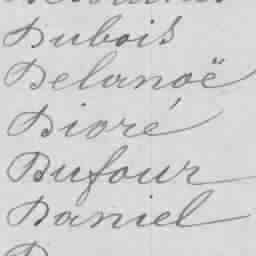 Dubois
Delanoë
Dioré
Dufour
Daniel